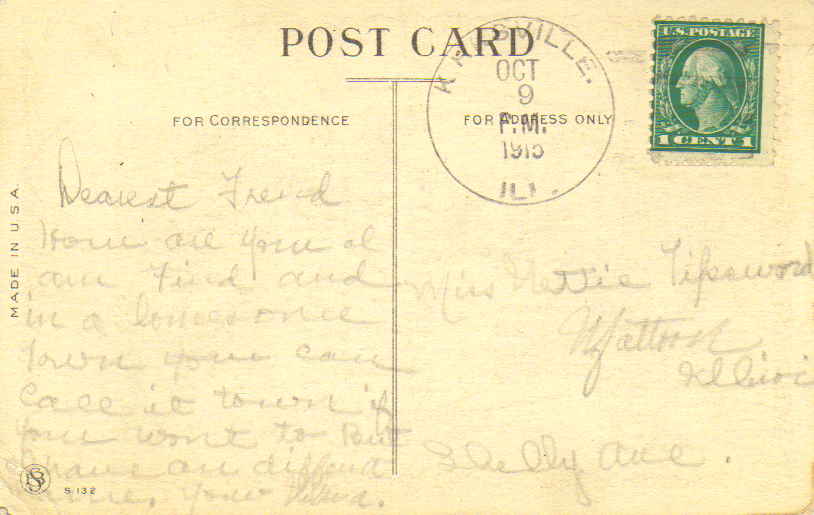 POST CARD
FOR CORRESPONDENCE
FOR ADDRESS ONLY
OCT
9
P.M.
1915
ILL.
U.S. POSTAGE
1 CENT 1
MADE IN U.S.A.
Dearest Freind
How are you I
am find and
in a lonesome
town you can
call it town if
you wont to But
I have an
Your
Miss Nettie Tipsword
Mattoon
Illinoi
Shelby Ave.
S 132